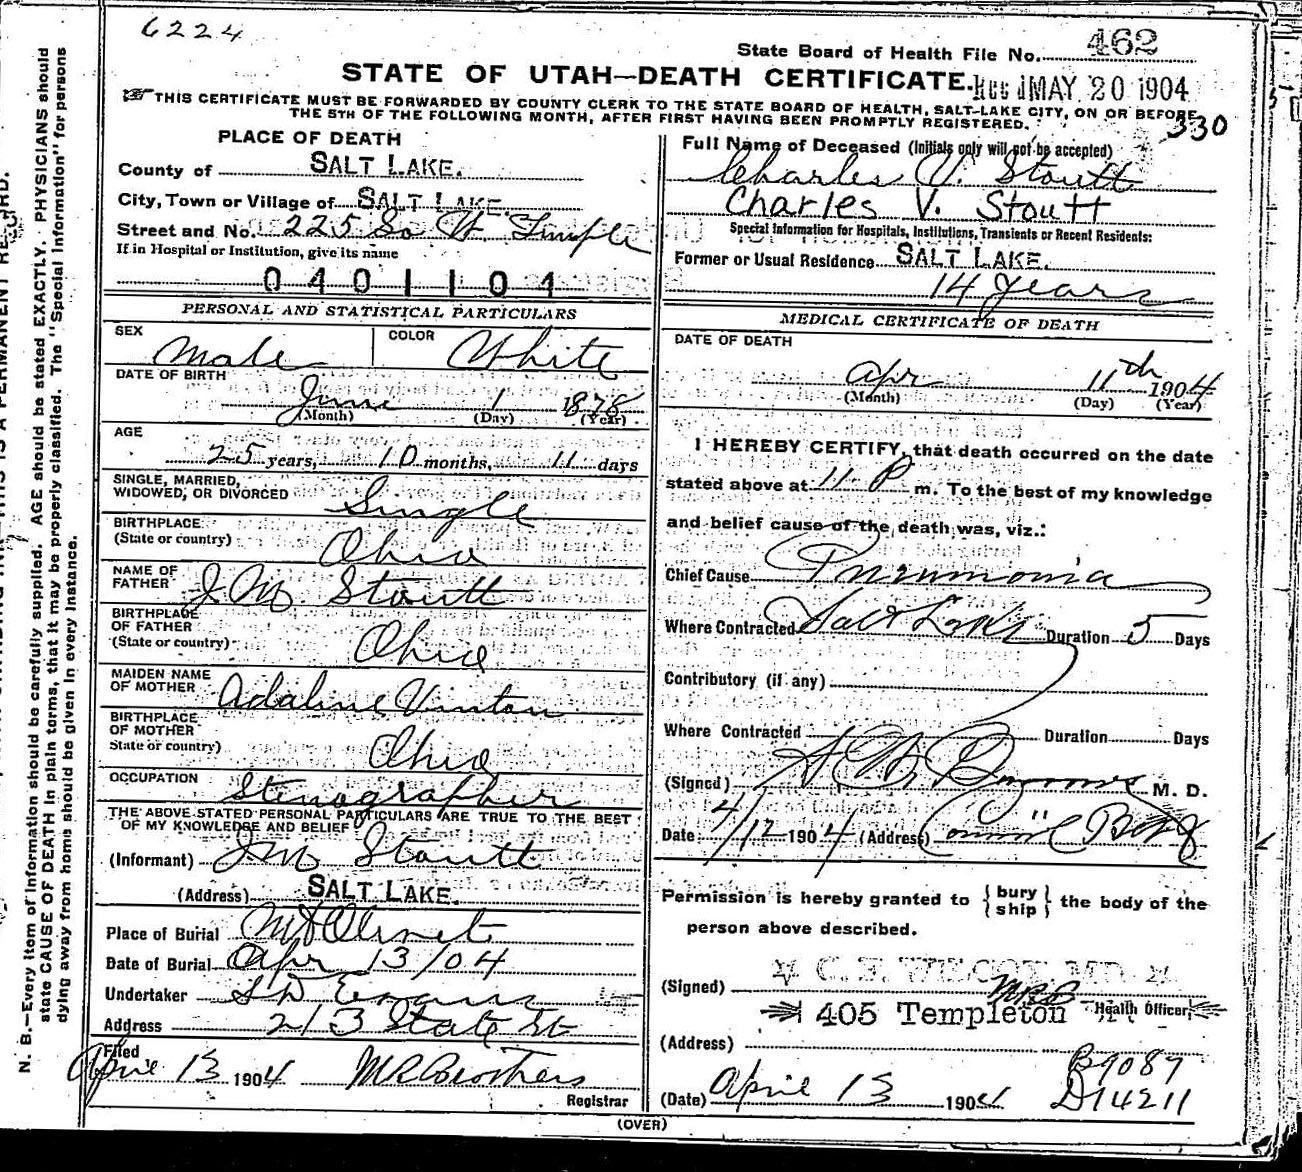 6224
State Board of Health File No. 462
STATE OF UTAH—DEATH CERTIFICATE.
MAY 20 1904
THIS CERTIFICATE MUST BE FORWARDED BY COUNTY CLERK TO THE STATE BOARD OF HEALTH, SALT LAKE CITY, ON OR BEFORE
THE 5TH OF THE FOLLOWING MONTH, AFTER FIRST HAVING BEEN PROMPTLY REGISTERED.
330
PLACE OF DEATH
County of SALT LAKE.
City, Town or Village of SALT LAKE.
Street and No. 225 So W. Temple
If in Hospital or Institution, give its name
0401104
PERSONAL AND STATISTICAL PARTICULARS
SEX Male COLOR White
DATE OF BIRTH
June 1 1878
(Month) (Day) (Year)
AGE
25 years, 10 months, 11 days
SINGLE, MARRIED,
WIDOWED, OR DIVORCED Single
BIRTHPLACE
(State or country) Ohio
NAME OF
FATHER J M Stoutt
BIRTHPLACE
OF FATHER
(State or country) Ohio
MAIDEN NAME
OF MOTHER Adaline Vinton
BIRTHPLACE
OF MOTHER
State or country) Ohio
OCCUPATION Stenographer
THE ABOVE STATED PERSONAL PARTICULARS ARE TRUE TO THE BEST
OF MY KNOWLEDGE AND BELIEF
(Informant) J M Stoutt
(Address) SALT LAKE.
Place of Burial Mt Olivet
Date of Burial Apr 13/04
Undertaker S D Evans
Address 213 State St
Filed
April 13 1904 M R Brothers
Registrar
Full Name of Deceased (Initials only will not be accepted)
Charles V. Stoutt
Charles V. Stoutt
Special Information for Hospitals, Institutions, Transients or Recent Residents:
Former or Usual Residence SALT LAKE.
14 years
MEDICAL CERTIFICATE OF DEATH
DATE OF DEATH
Apr 11th 1904
(Month) (Day) (Year)
I HEREBY CERTIFY, that death occurred on the date
stated above at 11 P m. To the best of my knowledge
and belief cause of the death was, viz.:
Chief Cause Pneumonia
Where Contracted Salt Lake Duration 5 Days
Contributory (if any)
Where Contracted Duration Days
(Signed) M. D.
Date 4/12 1904 (Address)
Permission is hereby granted to { bury ship } the body of the
person above described.
C. F. WILCOX, MD
(Signed) MRB
405 Templeton Health Officer
(Address)
B9087
(Date) April 13 1904 D14211
(OVER)
N. B.—Every item of information should be carefully supplied. AGE should be stated EXACTLY. PHYSICIANS should
state CAUSE OF DEATH in plain terms, that it may be properly classified. The "Special Information" for persons
dying away from home should be given in every instance.